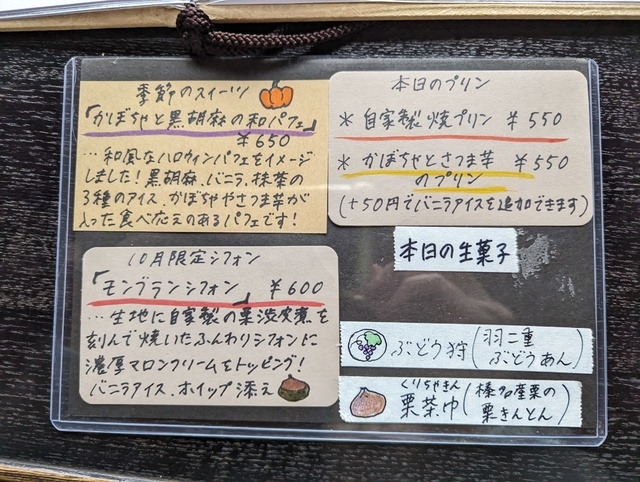 季節のスイーツ
「かぼちゃと黒胡麻の和パフェ」
¥650
…和風なハロウィンパフェをイメージ
しました！黒胡麻、バニラ、抹茶の
3種のアイス、かぼちゃやさつま芋が
入った食べ応えのあるパフェです！
10月限定シフォン
「モンブランシフォン」 ¥600
…生地に自家製の栗渋皮煮を
刻んで焼いたふんわりシフォンに
濃厚マロンクリームをトッピング！
バニラアイス、ホイップ添え
本日のプリン
* 自家製焼プリン ¥550
* かぼちゃとさつま芋 ¥550
のプリン
(+50円でバニラアイスを追加できます)
本日の生菓子
ぶどう狩(羽二重
ぶどうあん)
くりちゃきん
栗茶巾(榛名産栗の
栗きんとん)